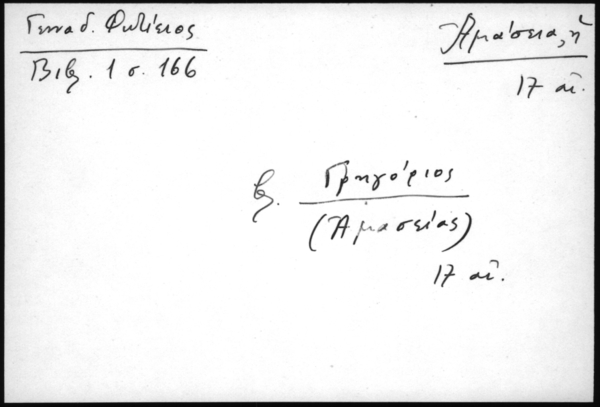 Γενναδ. Φυτίειος
Βιβ. 1 σ. 166
Ἀμάσεια, ἡ
17 αἰ.
β. Γρηγόριος
(Ἀμασείας)
17 αἰ.